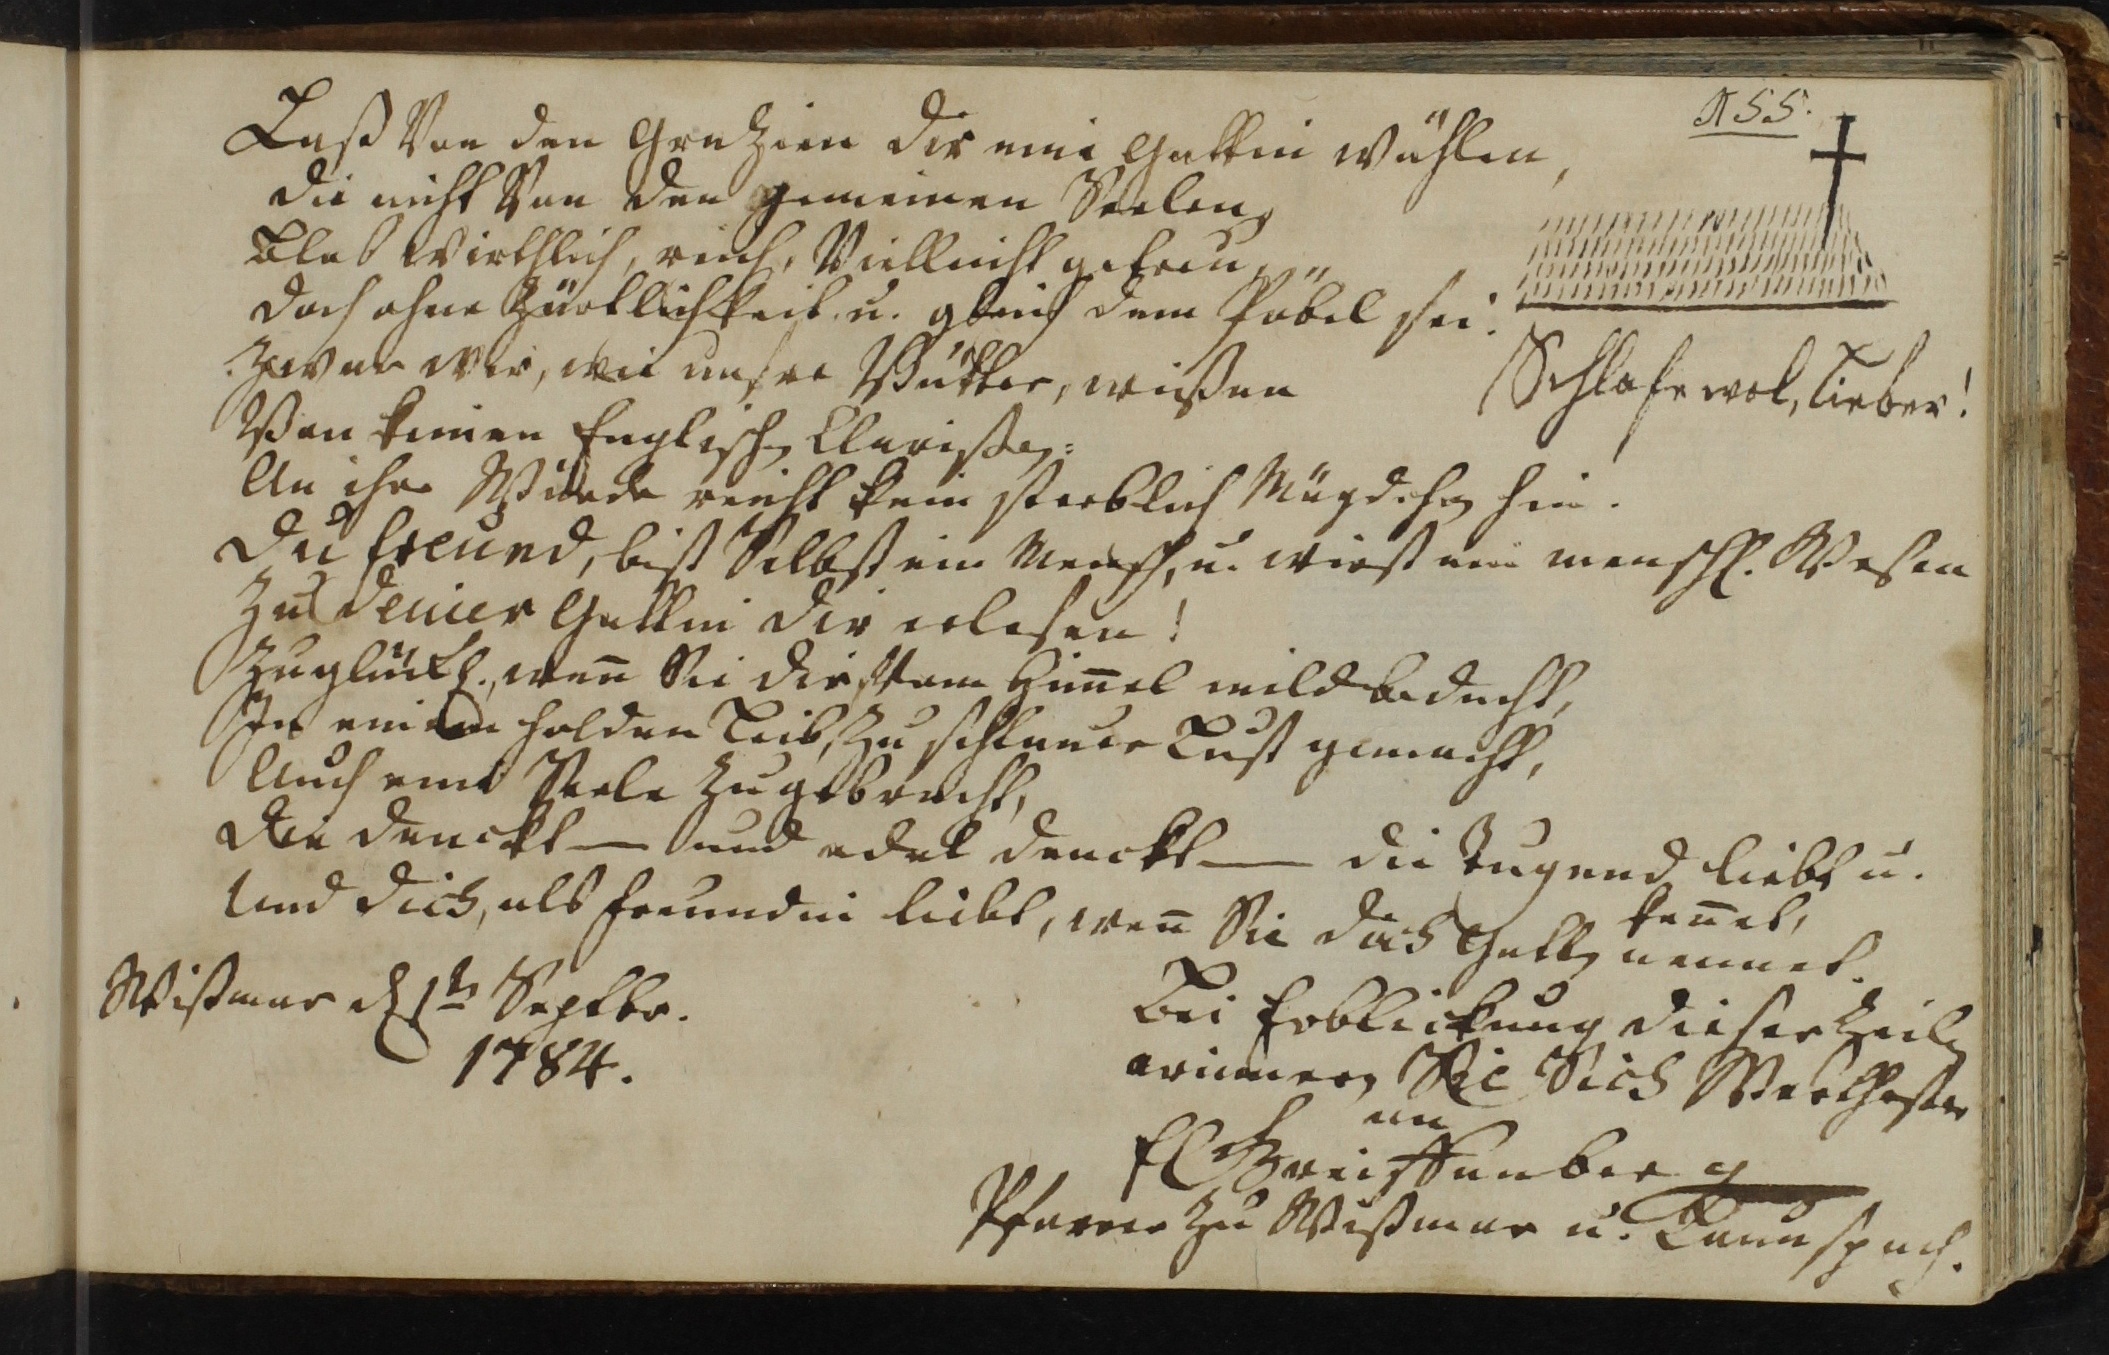 155.
Laß Von den Grazien dir eine Gattin wählen,
die nicht Von den gemeinen Seelen,
Blos wirthlich, reich, Vielleicht getreu,
doch ohne Zärtlichkeit u. gleich dem Pöbel sei.
Zwar wir, wie unsre Vätter, wißen
Von keinen Englischen Clarißen:
An ihre Würde reicht kein sterblich Mägdchen hin.
Du freund, bist Selbst ein Mensch, u. wirst ein menschl. Wesen
Zu deiner Gattin dir erlesen!
Zu glückl., wenn Sie dir, Vom Himmel mild bedacht,
In einem holden Leib, zu schlauer Lust gemacht,
Auch eine Seele zugebracht,
die denckt — und edel denckt — die Tugend liebt u.
kennet,
Und dich, als freundin liebt, wenn Sie dich Gatten nennet.
Schlafe wol, Lieber!
Wißmar d 1ten Septbr.
1784.
Bei Erblickung dieser Zeilen
erinnern Sie Sich Werthester
an
Greiffenberg
Pfarrer zu Wißmar u. Launspach.